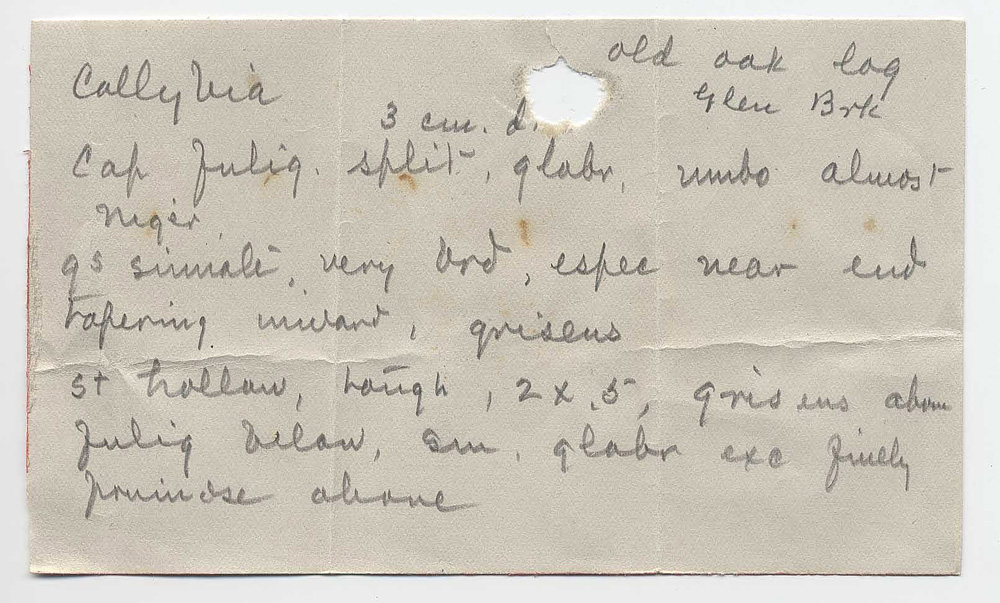 old oak log
Collybia
Glen Brk
3 cm. d.
Cap fulig. split, glabr, umbo almost
niger,
gs sinuate, very brd, espec near end
tapering inward, griseus
st hollow, tough, 2 x .5, griseus above
fulig below, sm, glabr exc finely
pruinose above